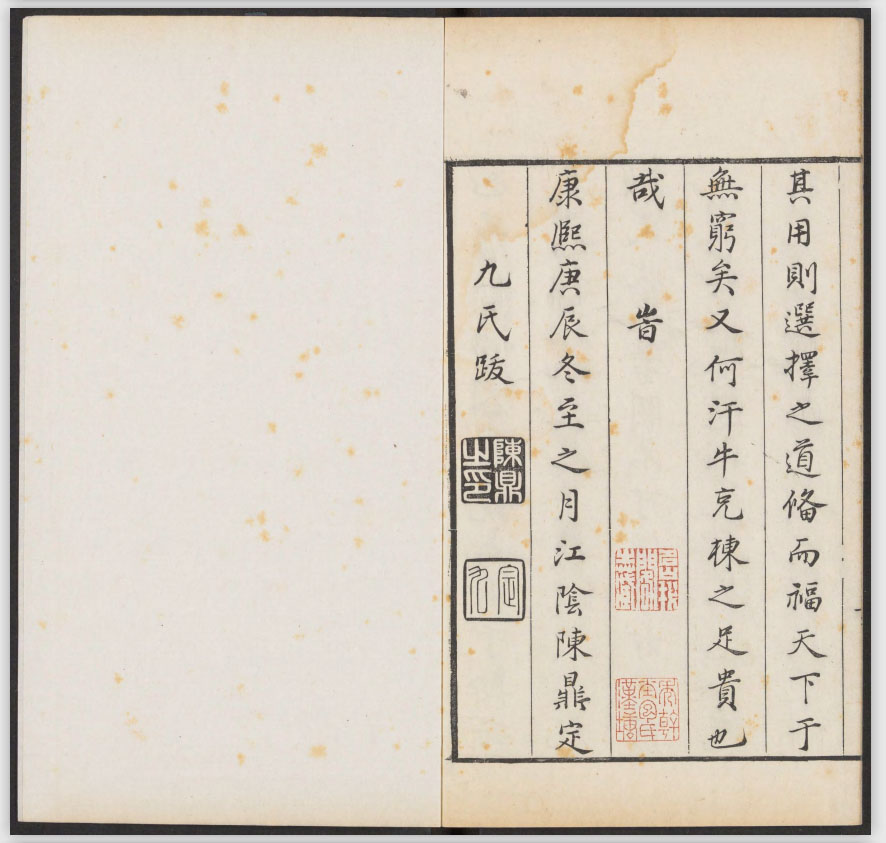 其用則選擇之道備而福天下于
無窮矣又何汗牛充棟之足貴也
哉 旹
康熙庚辰冬至之月江陰陳鼎定
九氏跋
陳鼎之印
定九